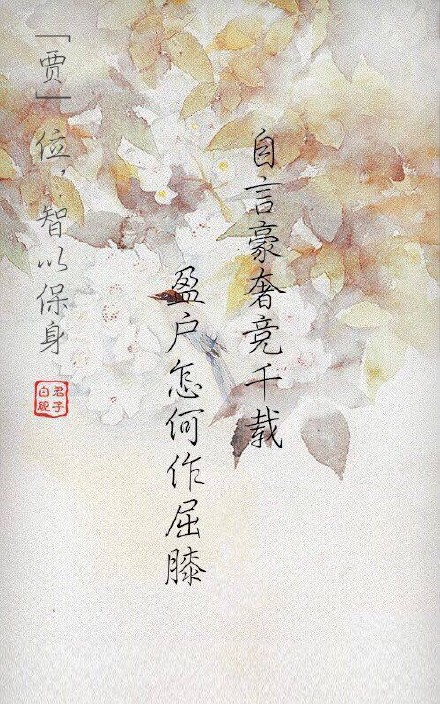 自言豪奢竞千载
盈户怎何作屈膝
「贾」位，智以保身
君子
白舰